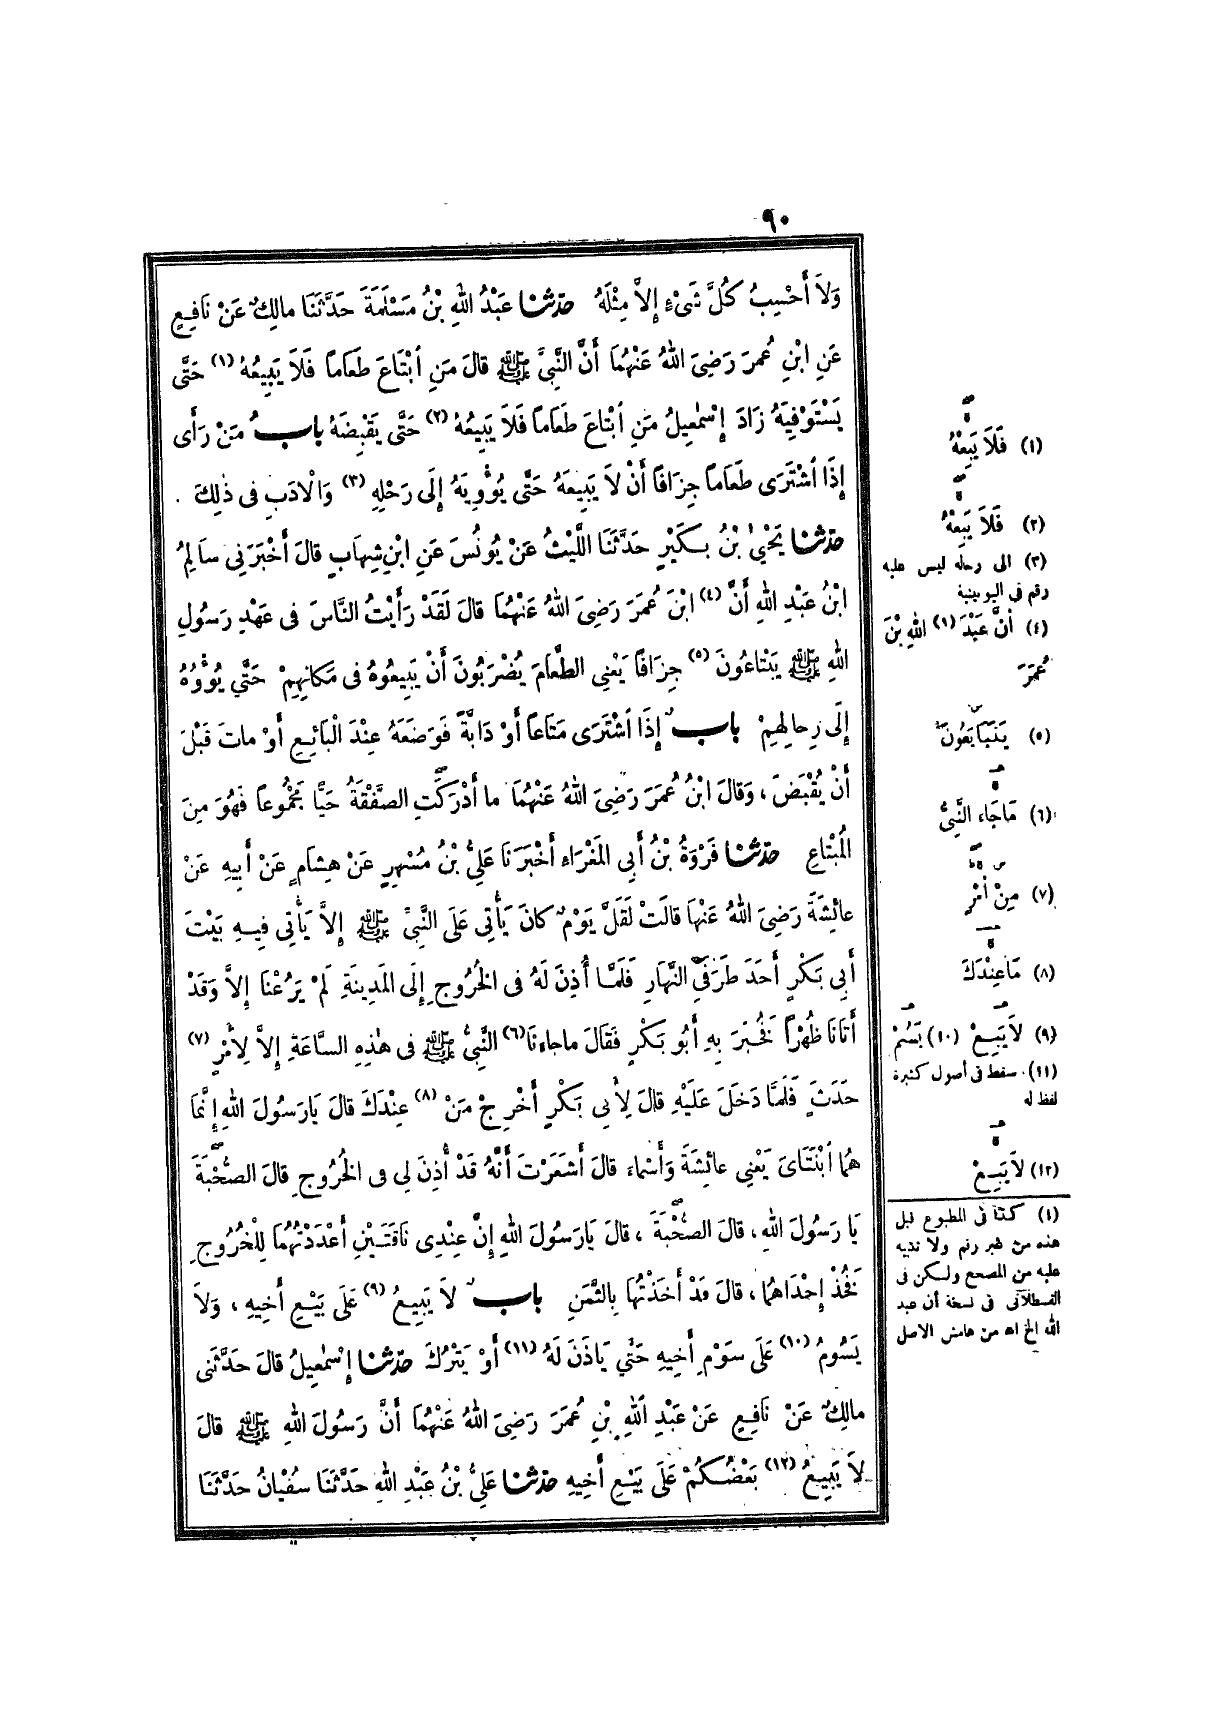 ٩٠
وَلَا أَحْسِبُ كُلَّ شَىْءٍ إِلاَّ مِثْلَهُ حدثنا عَبْدُ اللهِ بْنُ مَسْلَمَةَ حَدَّثَنَا مالِكٌ عَنْ نَافِعٍ
عَنِ ابْنِ عُمَرَ رَضِىَ اللهُ عَنْهُمَا أَنَّ النَّبِىَّ ﷺ قالَ مَنِ ابْتَاعَ طَعَاماً فَلَا يَبِيعُهُ (١) حَتَّى
يَسْتَوْفِيَهُ زَادَ إِسْمٰعِيلُ مَنِ ابْتَاعَ طَعَاماً فَلَا يَبِيعُهُ (٢) حَتَّى يَقْبِضَهُ بابُ مَنْ رَأَى
إِذَا اشْتَرَى طَعَاماً جِزَافاً أَنْ لاَ يَبِيعَهُ حَتَّى يُؤْوِيَهُ إِلَى رَحْلِهِ (٣) وَالْادَبِ فى ذٰلِكَ .
حدثنا يَحْيىٰ بْنُ بُكَيْرٍ حَدَّثَنَا اللَّيْثُ عَنْ يُونُسَ عَنِ ابْنِ شِهَابٍ قالَ أَخْبَرَنِى سَالِمُ
ابْنُ عَبْدِ اللهِ أَنَّ (٤) ابْنَ عُمَرَ رَضِىَ اللهُ عَنْهُمَا قالَ لَقَدْ رَأَيْتُ النَّاسَ فى عَهْدِ رَسُولِ
اللهِ ﷺ يَبْتَاعُونَ (٥) جِزَافاً يَعْنِى الطَّعَامَ يُضْرَبُونَ أَنْ يَبِيعُوهُ فى مَكَانِهِمْ حَتَّى يُؤْوُهُ
إِلَى رِحالِهِمْ بابٌ إِذَا اشْتَرَى مَتَاعاً أَوْ دَابَّةً فَوَضَعَهُ عِنْدَ الْبَائِعِ أَوْ ماتَ قَبْلَ
أَنْ يُقْبَضَ ، وَقالَ ابْنُ عُمَرَ رَضِىَ اللهُ عَنْهُمَا ما أَدْرَكَتِ الصَّفْقَةُ حَيًّا مَجْمُوعاً فَهُوَ مِنَ
الْمُبْتَاعِ حدثنا فَرْوَةُ بْنُ أَبِى المَغْرَاءِ أَخْبَرَنَا عَلِىُّ بْنُ مُسْهِرٍ عَنْ هِشَامٍ عَنْ أَبِيهِ عَنْ
عائِشَةَ رَضِىَ اللهُ عَنْهَا قالَتْ لَقَلَّ يَوْمٌ كانَ يَأْتِى عَلَى النَّبِىِّ ﷺ إِلاَّ يَأْتِى فِيهِ بَيْتَ
أَبِى بَكْرٍ أَحَدَ طَرَفَىِ النَّهَارِ فَلَمَّا أُذِنَ لَهُ فى الخُرُوجِ إِلَى المَدِينَةِ لَمْ يَرُعْنَا إِلاَّ وَقَدْ
أَتَانَا ظُهْراً فَخُبِّرَ بِهِ أَبُو بَكْرٍ فَقَالَ ماجاءنَا (٦) النَّبِىُّ ﷺ فى هٰذِهِ السَّاعَةِ إِلاَّ لِأَمْرٍ (٧)
حَدَثَ فَلَمَّا دَخَلَ عَلَيْهِ قالَ لِأَبِى بَكْرٍ أَخْرِجْ مَنْ (٨) عِنْدَكَ قالَ يَارَسُولَ اللهِ إِنَّمَا
هُمَا ابْنَتَاىَ يَعْنِى عائِشَةَ وَأَسْمَاءَ قالَ أَشَعَرْتَ أَنَّهُ قَدْ أُذِنَ لِى فى الخُرُوجِ قالَ الصُّحْبَةَ
يَا رَسُولَ اللهِ ، قالَ الصُّحْبَةَ ، قالَ يَارَسُولَ اللهِ إِنَّ عِنْدِى نَاقَتَيْنِ أَعْدَدْتُهُمَا لِلْخُرُوجِ
فَخُذْ إِحْدَاهُمَا ، قالَ قَدْ أَخَذْتُهَا بِالثَّمَنِ بابٌ لاَ يَبِيعُ (٩) عَلَى بَيْعِ أَخِيهِ ، وَلاَ
يَسُومُ (١٠) عَلَى سَوْمِ أَخِيهِ حَتَّى يَاذَنَ لَهُ (١١) أَوْ يَتْرُكَ حدثنا إِسْمٰعِيلُ قالَ حَدَّثَنِى
مالِكٌ عَنْ نَافِعٍ عَنْ عَبْدِ اللهِ بْنِ عُمَرَ رَضِىَ اللهُ عَنْهُمَا أَنَّ رَسُولَ اللهِ ﷺ قالَ
لاَ يَبِيعُ (١٢) بَعْضُكُمْ عَلَى بَيْعِ أَخِيهِ حدثنا عَلِىُّ بْنُ عَبْدِ اللهِ حَدَّثَنَا سُفْيَانُ حَدَّثَنَا
(١) فَلَا يَبِعْهُ
(٢) فَلَا يَبِعْهُ
(٣) الى رحله ليس عليه
رقم فى اليونينية
(٤) أنَّ عَبْدَ (١) اللهِ بْنَ
عُمَرَ
(٥) يَتَبَايَعُونَ
(٦) مَاجَاءَ النَّبِىُّ
(٧) مِنْ أمْرٍ
(٨) مَاعِنْدَكَ
(٩) لاَ يَبِعْ (١٠) يَسُمْ
(١١) سقط فى أصول كثيرة
لفظ له
(١٢) لاَ يَبِعْ
(١) كذا فى المطبوع قبل
هذه من غير رقم ولا تنبيه
عليه من المصحح ولكن فى
القسطلآنى فى نسخة أن عبد
الله الخ اه من هامش الاصل